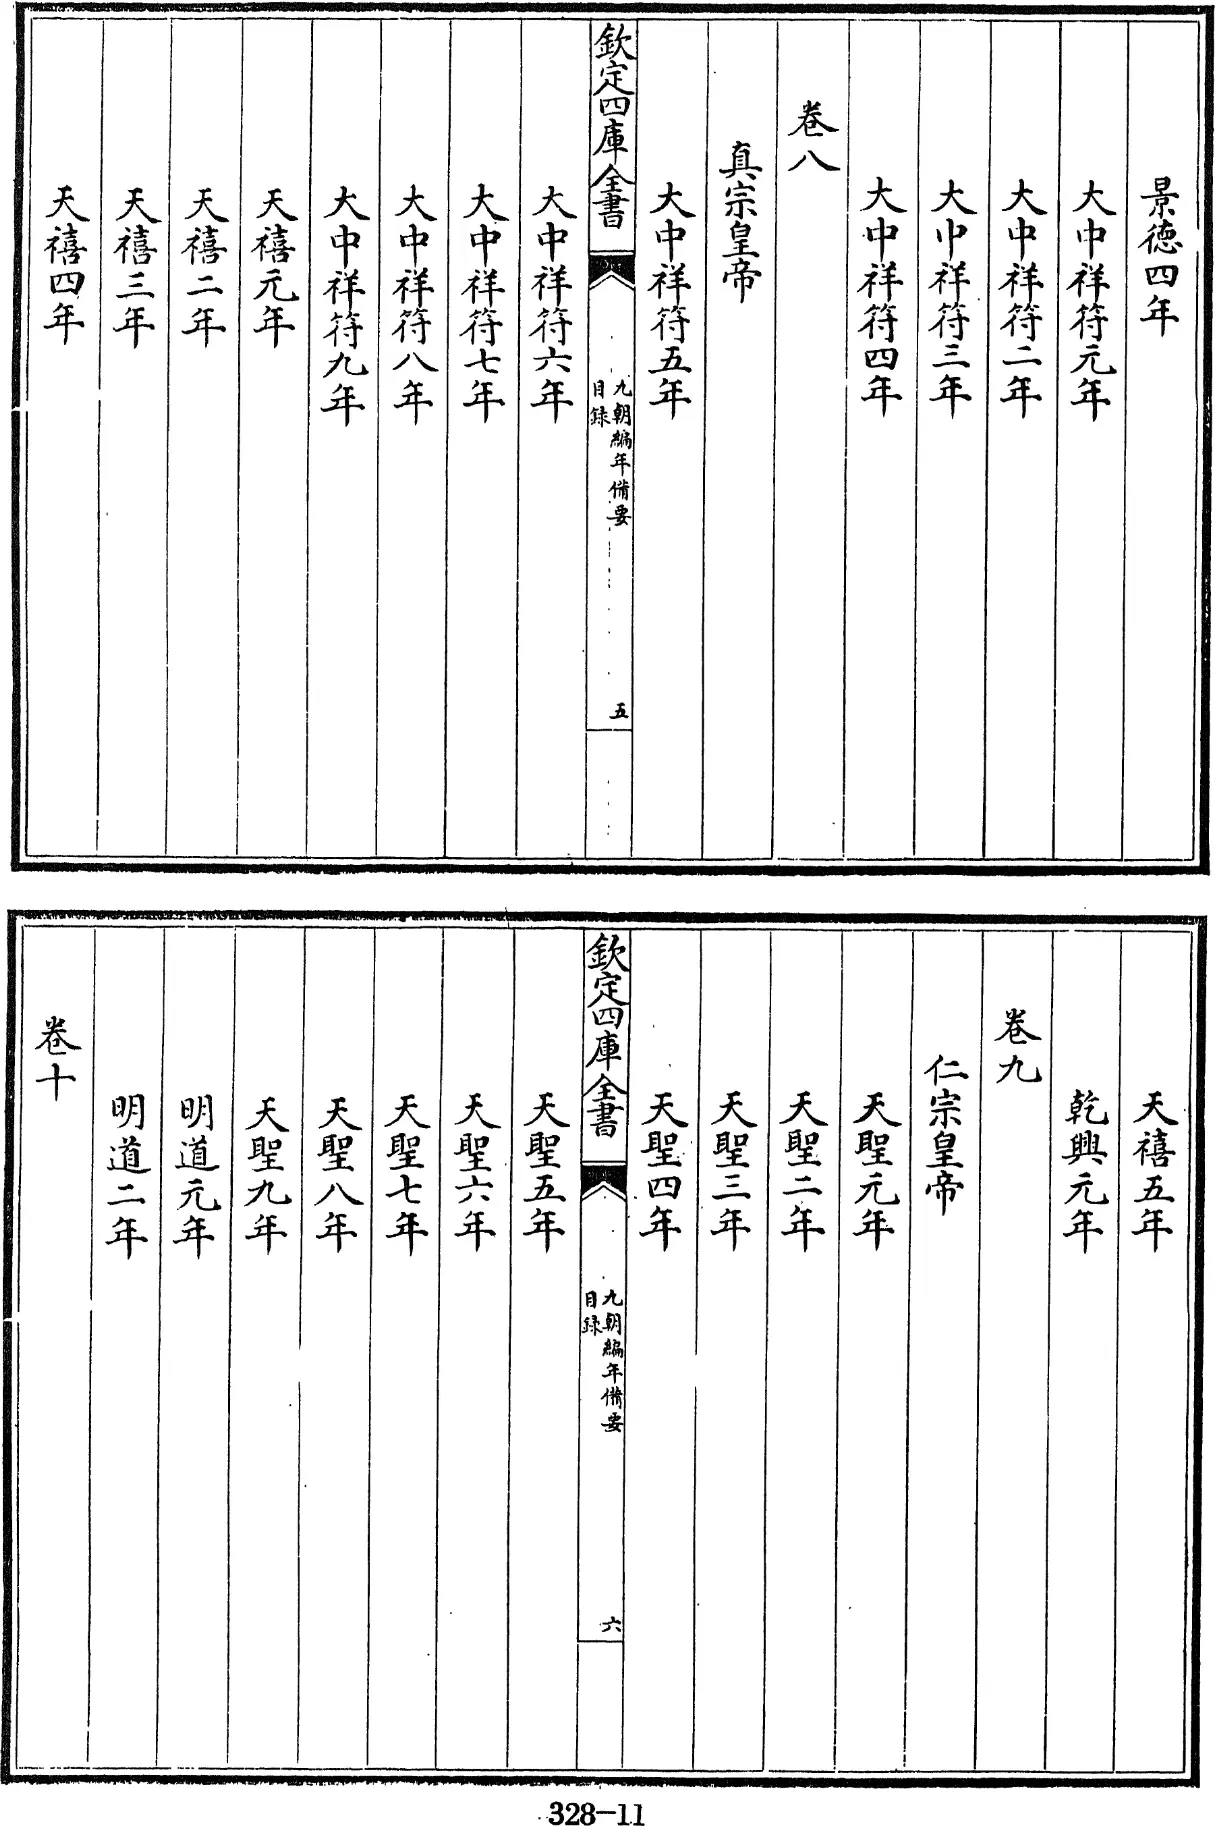 景德四年
大中祥符元年
大中祥符二年
大中祥符三年
大中祥符四年
卷八
真宗皇帝
大中祥符五年
欽定四庫全書
九朝編年備要
目録
五
大中祥符六年
大中祥符七年
大中祥符八年
大中祥符九年
天禧元年
天禧二年
天禧三年
天禧四年
天禧五年
乾興元年
卷九
仁宗皇帝
天聖元年
天聖二年
天聖三年
天聖四年
欽定四庫全書
九朝編年備要
目録
六
天聖五年
天聖六年
天聖七年
天聖八年
天聖九年
明道元年
明道二年
卷十
328-11